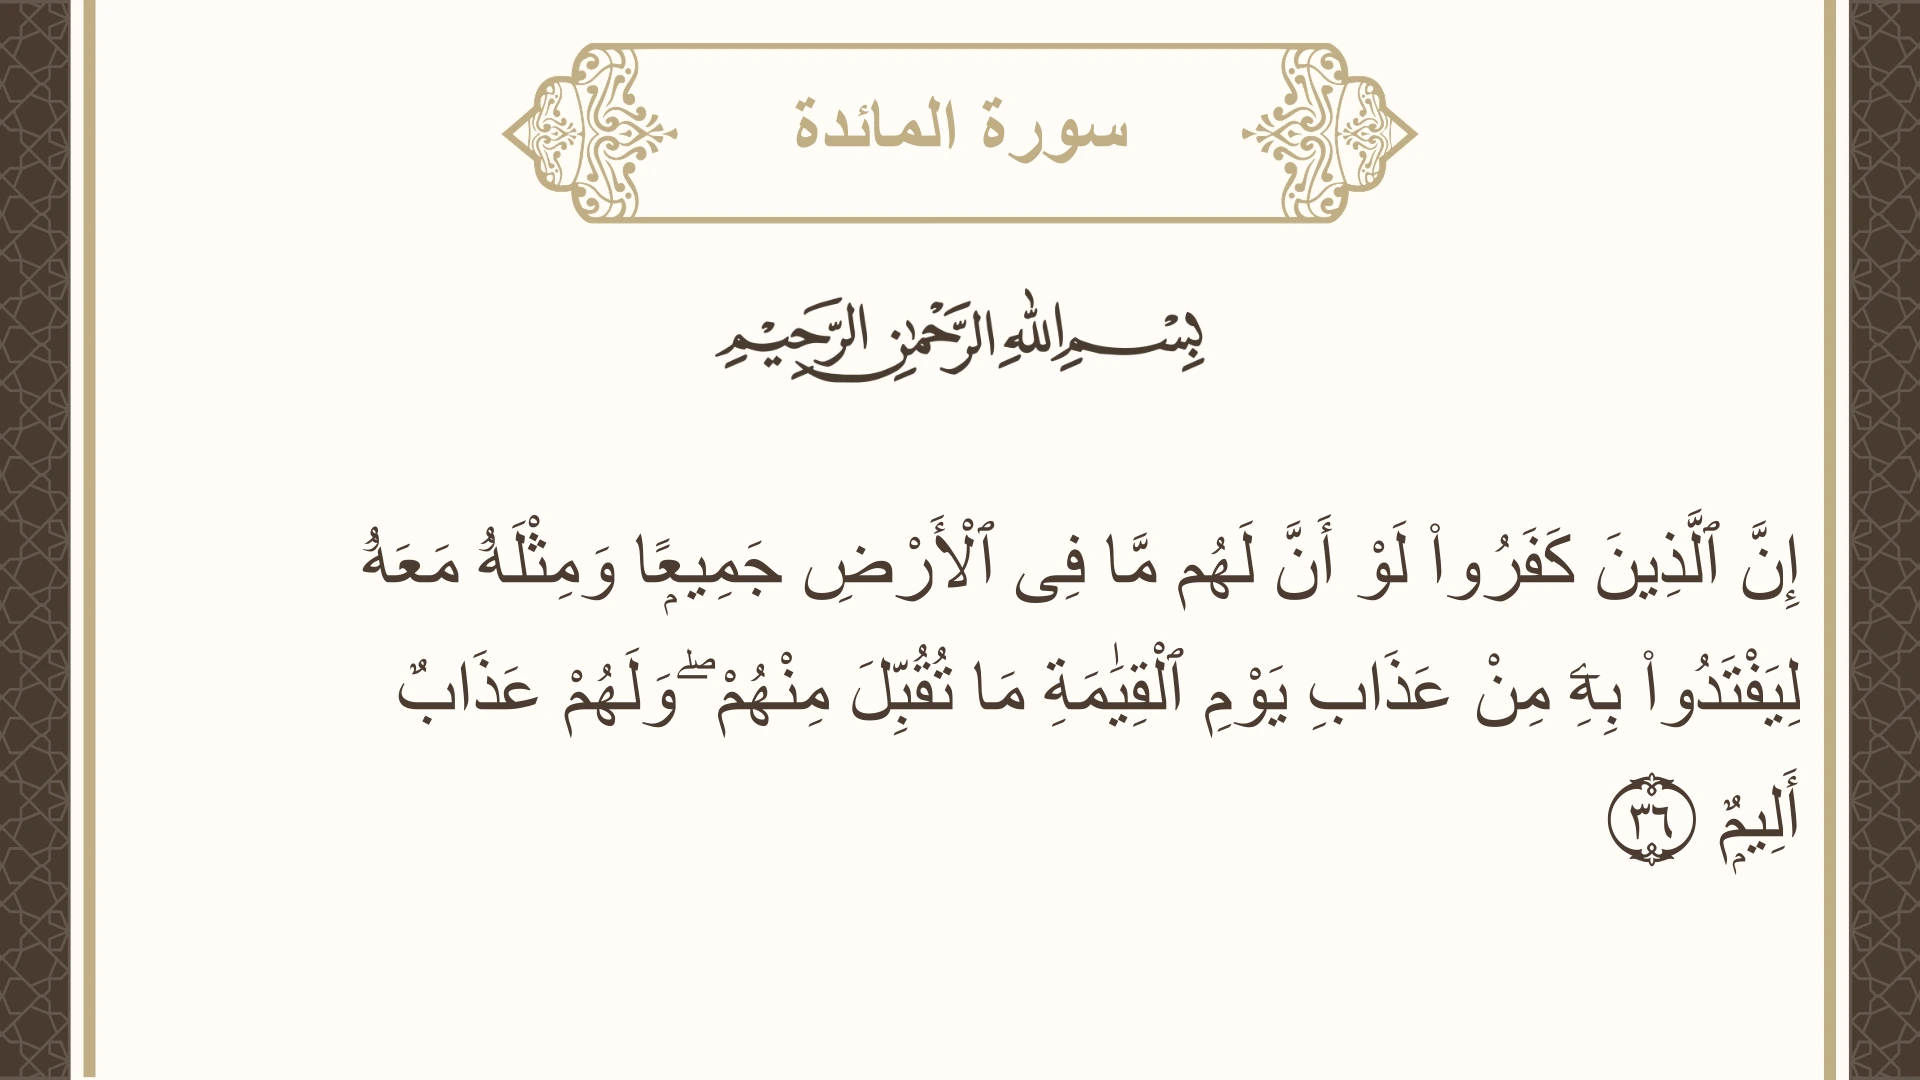 سورة المائدة
بِسْمِ اللهِ الرَّحْمٰنِ الرَّحِيْمِ
إِنَّ ٱلَّذِينَ كَفَرُوا۟ لَوْ أَنَّ لَهُم مَّا فِى ٱلْأَرْضِ جَمِيعًۭا وَمِثْلَهُۥ مَعَهُۥ
لِيَفْتَدُوا۟ بِهِۦ مِنْ عَذَابِ يَوْمِ ٱلْقِيَـٰمَةِ مَا تُقُبِّلَ مِنْهُمْ ۖ وَلَهُمْ عَذَابٌ
أَلِيمٌۭ ٣٦